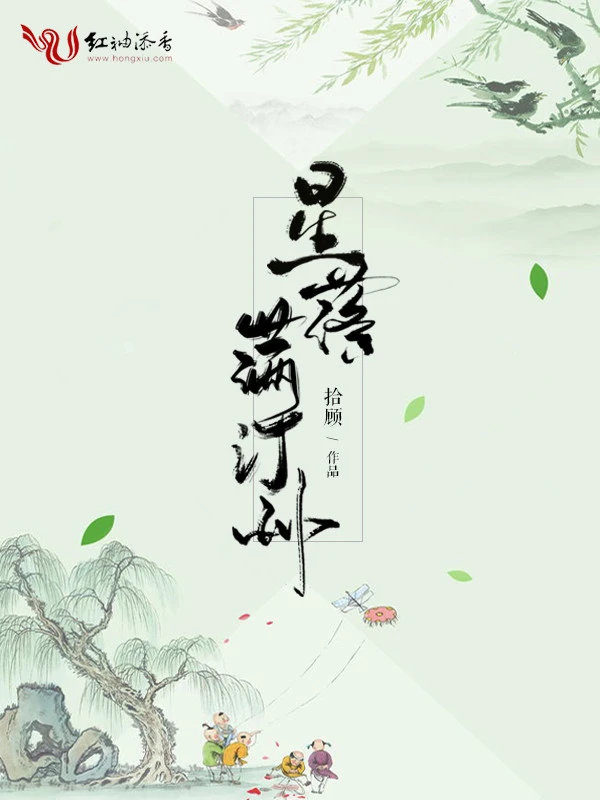 红袖添香
www.hongxiu.com
星落
满汀
拾顾/作品